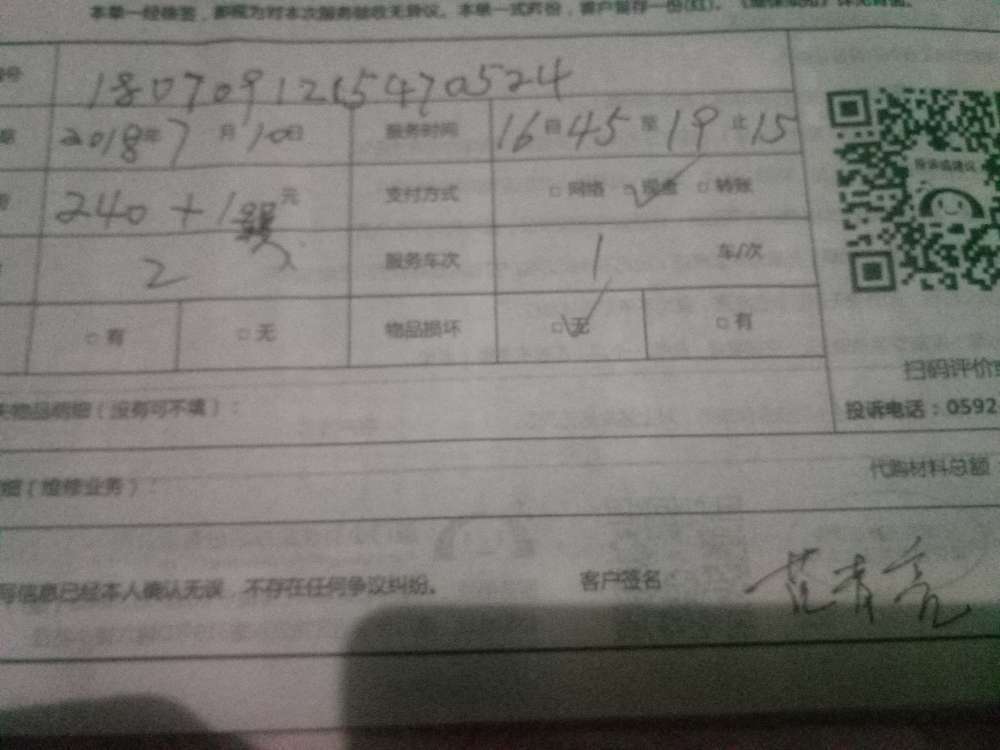 本单一经接签，即视为对本次服务验收无异议。本单一式两份，客户留存一份(红)。
1807091215470524
2018年7月10日 服务时间 16时45至19止15
240+1 元 支付方式 □网络 ☑现金 □转账
投诉或建议
2 人 服务车次 1 车/次
□有 □无 物品损坏 ☑无 □有
扫码评价
物品明细（没有可不填）：
投诉电话：0592
细（维修业务）：
代购材料总额
写信息已经本人确认无误，不存在任何争议纠纷。 客户签名